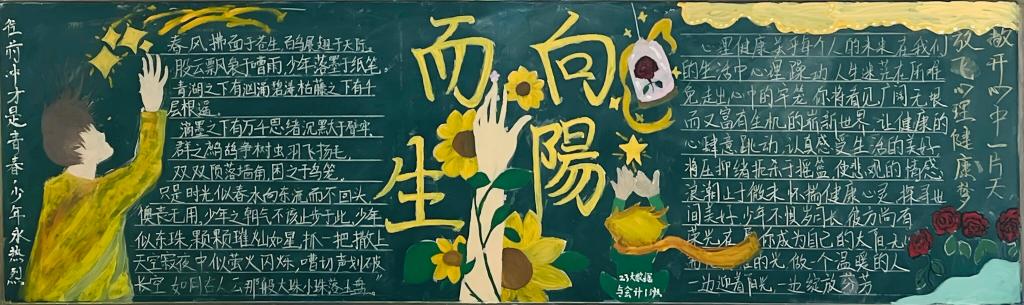 前中才是青春·少年永热烈
春风拂面于苍生 百鸟展翅于天际
股云飘袅于嘈雨 少年落墨于纸笔
青湖之下有汹涌碧涛 柏藤之下有千
层根遥
滴墨之下有万千思绪 沉黑大于
群之鹧鸪争树虫 羽飞扬毛
双双顶落墙角 困之于鸟笼
只是时光似春水向东流而不回头
惧责无用,少年之朝气不该止步于此,少年
似东珠,颗颗璀灿如星,抓一把撒上
天空寂夜中似萤火闪烁,嘈切声划破
长空 如同古人云那般大珠小珠落玉盘
向陽
而生
23大数据
与会计1班
心理健康关乎每个人的未来 在我们
的生活中心里躁动 人生迷茫在所难
免 走出心中的牢笼 你将看见广阔无垠
而又富有生机的崭新世界 让健康的
心肆意跳动 认真感受生活的美好
将压抑绪扼杀于摇篮 使悲观的情感
浪潮止于微末 怀揣健康心灵 探寻世
间美好 少年不惧岁月长 彼方尚有
荣光在 愿你成为自己的太阳 无
的光 做一个温暖的人
一边迎着阳光 一边绽放芬芳
敞开心中一片天
放飞心理健康梦